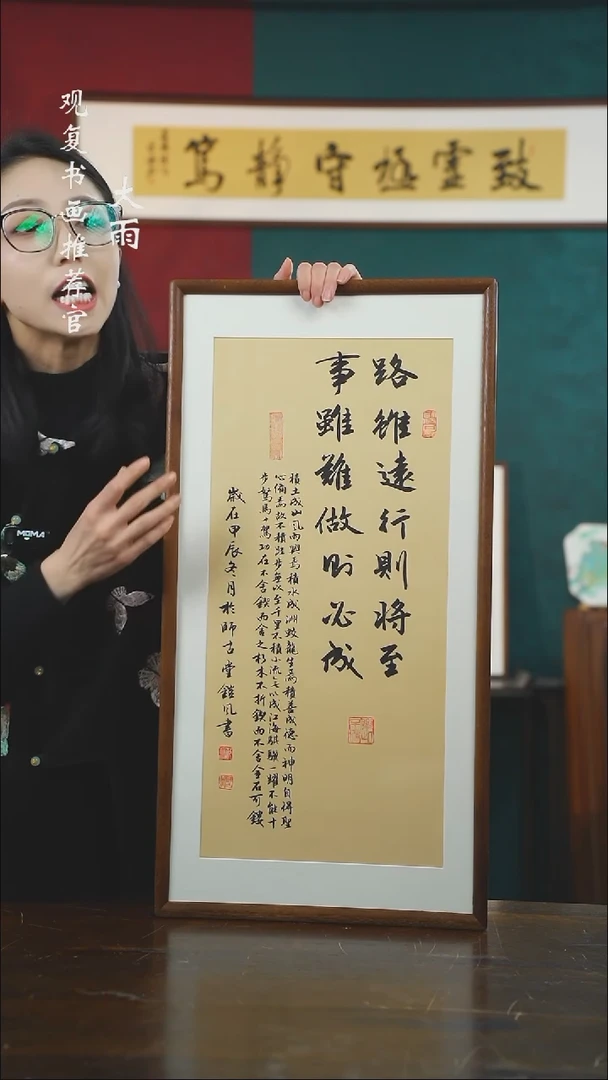 观复书画推荐官
大雨
致虛極守靜篤
路雖遠行則將至
事雖難做則必成
積土成山風雨興焉積水成淵蛟龍生焉積善成德而神明自得聖
心備焉故不積跬步無以至千里不積小流無以成江海騏驥一躍不能十
步駑馬十駕功在不舍鍥而舍之朽木不折鍥而不舍金石可鏤
歲在甲辰冬月於師古堂鎧風書
MOMA